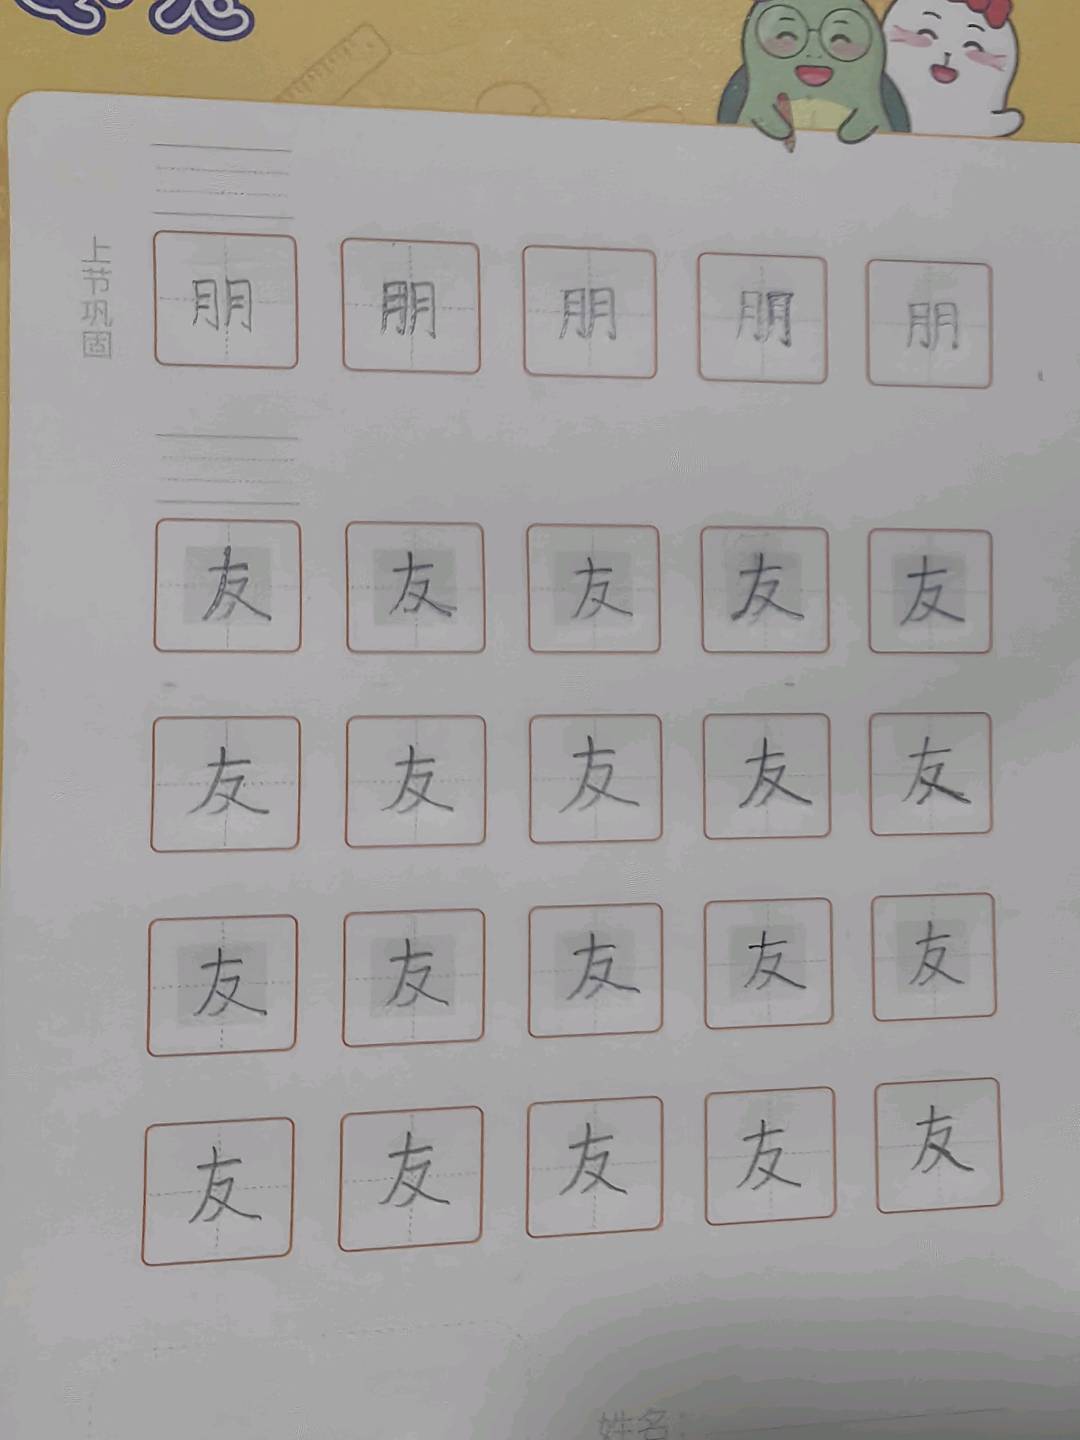 上节巩固
朋 朋 朋 朋 朋
友 友 友 友 友
友 友 友 友 友
友 友 友 友 友
友 友 友 友 友
姓名: